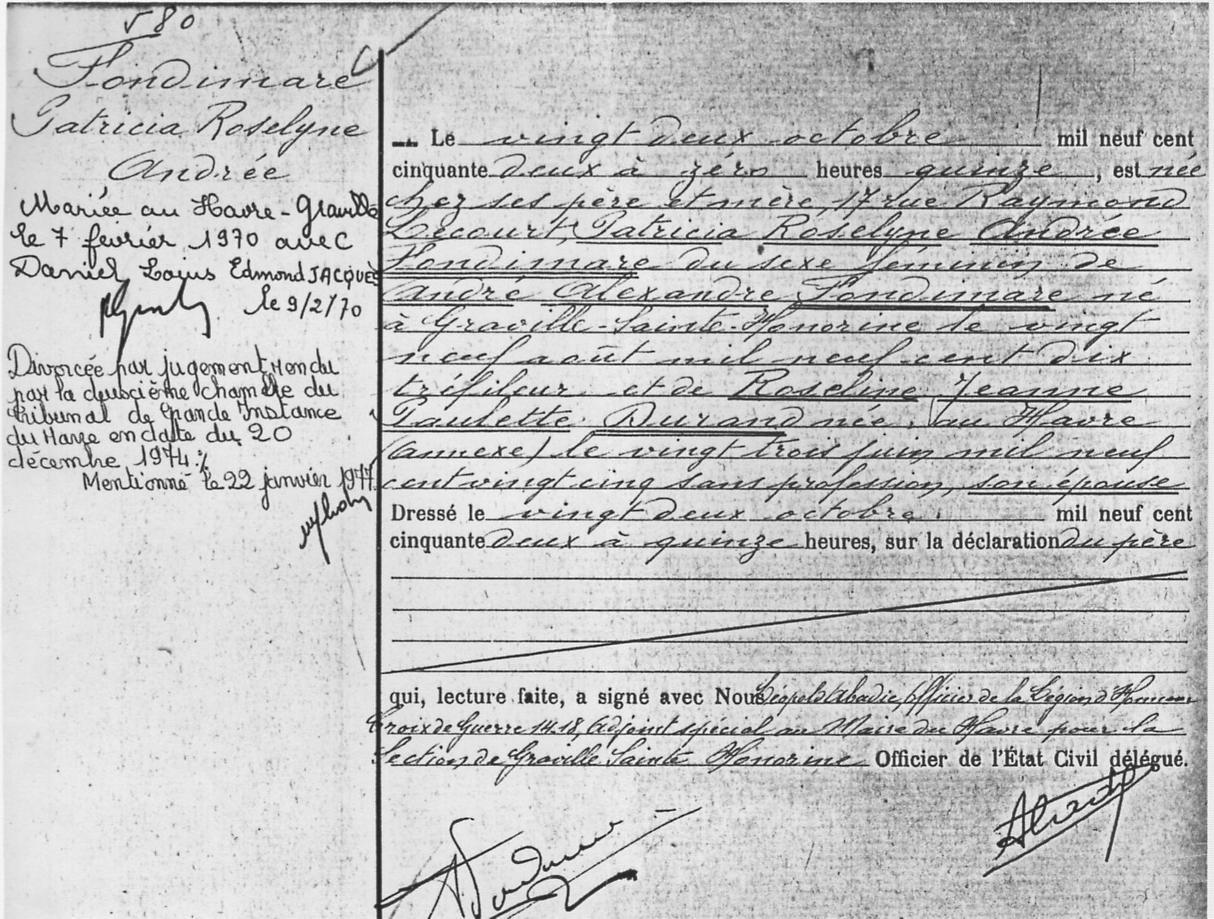 580
Fondimare
Patricia Roselyne
Andrée
Mariée au Havre-Graville
le 7 février 1970 avec
Daniel Louis Edmond JACQUES
le 9/2/70
Divorcée par jugement rendu
par la deuxième chambre du
tribunal de Grande Instance
du Havre en date du 20
décembre 1974 ./.
Mentionné le 22 janvier 1977
Le vingt deux octobre mil neuf cent
cinquante deux à zéro heures quinze, est née
chez ses père et mère, 17 rue Raymond
Lecourt, Patricia Roselyne Andrée
Fondimare du sexe féminin de
André Alexandre Fondimare né
à Graville-Sainte-Honorine le vingt
neuf août mil neuf cent dix
tréfileur et de Roseline Jeanne
Paulette Durand née au Havre
(annexe) le vingt trois juin mil neuf
cent vingt cinq sans profession, son épouse
Dressé le vingt deux octobre mil neuf cent
cinquante deux à quinze heures, sur la déclaration du père
qui, lecture faite, a signé avec Nous Léopold Abadie, Officier de la Légion d'Honneur
Croix de Guerre 14.18, Adjoint spécial au Maire du Havre pour la
Section de Graville Sainte Honorine Officier de l'État Civil délégué.
Fondimare
Abadie